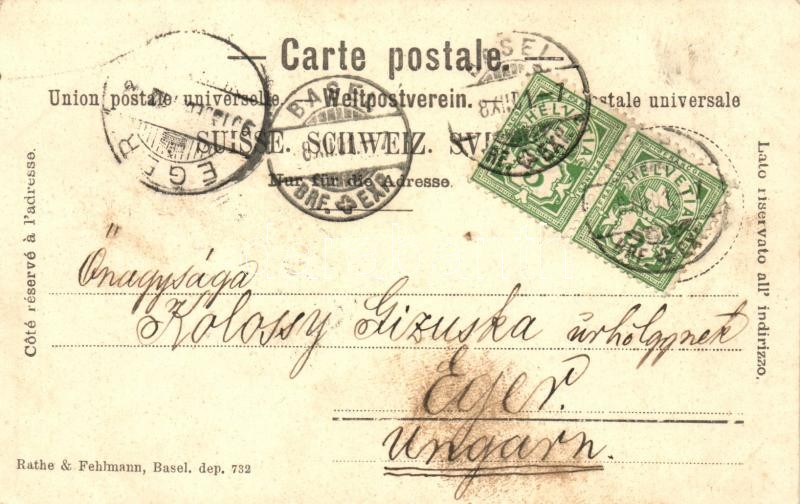 Carte postale.
Union postale universelle. Weltpostverein. stale universale
SUISSE. SCHWEIZ. SV
Nur für die Adresse.
Côté réservé à l'adresse.
Lato riservato all' indirizzo.
EGER
BASEL
BRF. EXP.
HELVETIA
HELVETIA
Őnagysága
Kolossy Gizuska úrhölgynek
Eger.
Ungarn.
Rathe & Fehlmann, Basel. dep. 732